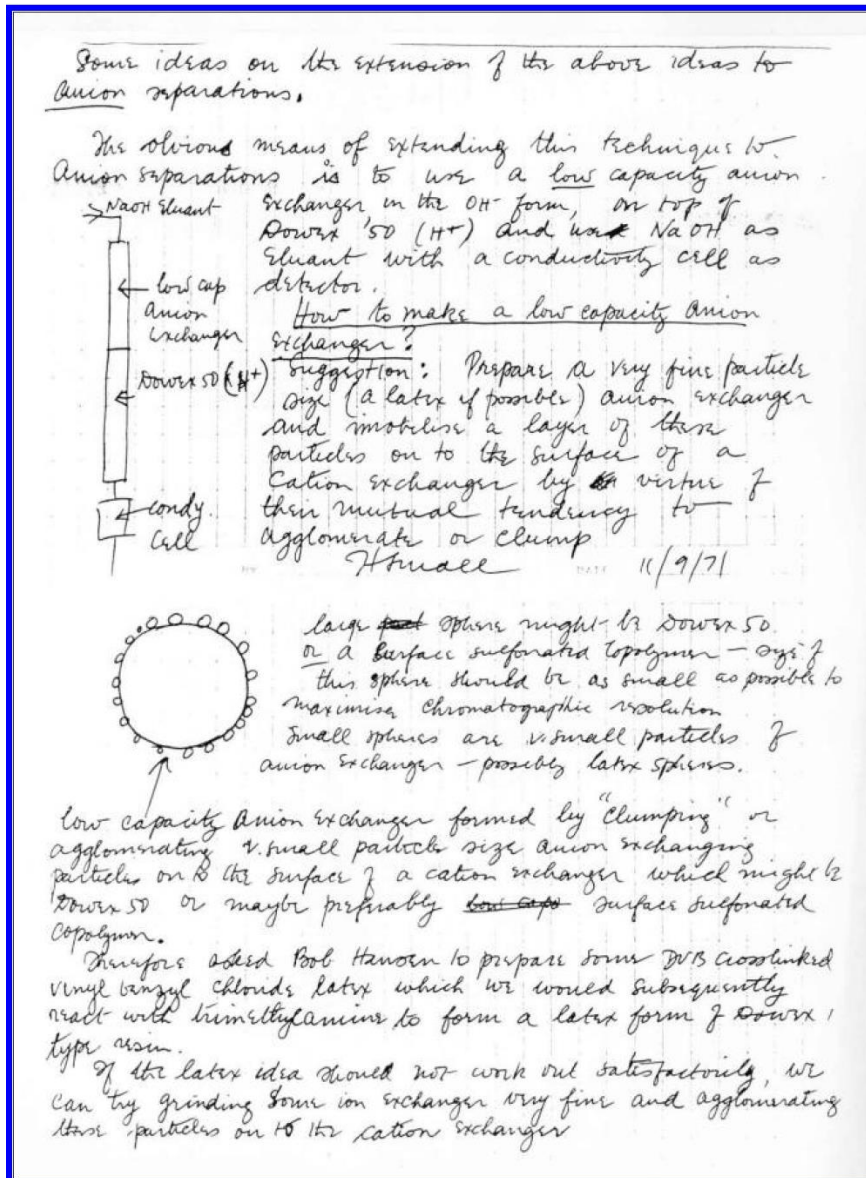 Some ideas on the extension of the above ideas to
anion separations.
The obvious means of extending this technique to
Anion separations is to use a low capacity anion
NaOH Eluant
exchanger in the OH- form, on top of
Dowex '50 (H+) and use NaOH as
Eluant with a conductivity cell as
detector.
low cap
Anion
Exchanger
Dowex 50 (H+)
condy.
cell
How to make a low capacity Anion
Exchanger?
Suggestion: Prepare a very fine particle
size (a latex if possible) anion exchanger
and imobilise a layer of these
particles on to the surface of a
Cation exchanger by virtue of
their mutual tendency to
agglomerate or clump
HSmall DATE 11/9/71
large sphere might be Dowex 50
or a surface sulfonated copolymer – size of
this sphere should be as small as possible to
maximise chromatographic resolution
Small spheres are v. small particles of
anion exchanger – possibly latex spheres.
low capacity Anion Exchanger formed by "clumping" or
agglomerating v. small particle size anion exchanging
particles on to the surface of a cation exchanger which might be
Dowex 50 or maybe preferably low capy surface sulfonated
copolymer.
Therefore asked Bob Hansen to prepare some DVB crosslinked
vinyl benzyl chloride latex which we would subsequently
react with trimethylamine to form a latex form of Dowex 1
type resin.
If the latex idea should not work out satisfactorily, we
can try grinding some ion exchanger very fine and agglomerating
these particles on to the cation exchanger